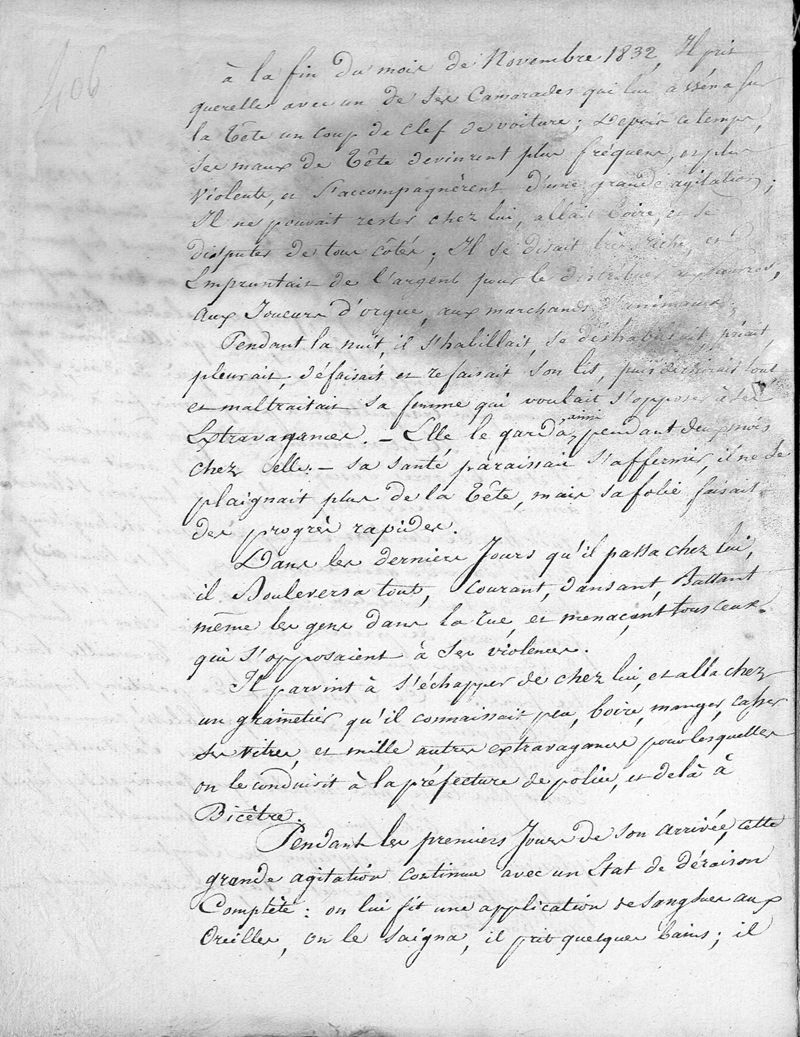 406
à la fin du mois de Novembre 1832, Il prit
querelle avec un de ses Camarades qui lui asséna sur
la Tête un coup de clef de voiture; Depuis ce temps,
ses maux de Tête devinrent plus fréquens, et plus
violents, et s'accompagnèrent d'une grande agitation;
Il ne pouvait rester chez lui, allait boire, et se
disputer de tous côtés; Il se disait très riche, et
Empruntait de l'argent pour le distribuer aux pauvres,
aux Joueurs d'orgue, aux marchands d'animaux;
Pendant la nuit, il s'habillait, se déshabillait, priait,
pleurait, défaisait et refaisait son lit, puis déchirait tout
et maltraitait sa femme qui voulait s'opposer à ses
Extravagances. – Elle le garda ainsi pendant deux mois
chez elle. – sa santé paraissait s'affermir, il ne se
plaignait plus de la Tête, mais sa folie faisait
des progrès rapides.
Dans les derniers Jours qu'il passa chez lui,
il Bouleversa tout, courant, dansant, Battant
même les gens dans la rue, et menaçant tous ceux
qui s'opposaient à ses violences.
Il parvint à s'échapper de chez lui, et alla chez
un grainetier qu'il connaissait peu, boire, manger, casser
ses vitres, et mille autres extravagances pour lesquelles
on le conduisit à la préfecture de police, et delà à
Bicêtre.
Pendant les premiers Jours de son arrivée, cette
grande agitation continue avec un Etat de déraison
Complète: on lui fit une application de Sangsues aux
Oreilles, on le saigna, il prit quelques bains; il